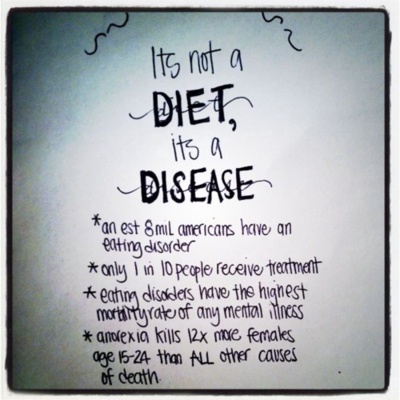 Its not a
DIET,
its a
DISEASE
* an est 8 mil americans have an
eating disorder
* only 1 in 10 people receive treatment
* eating disorders have the highest
mortality rate of any mental illness
* anorexia kills 12x more females
age 15-24 than ALL other causes
of death.